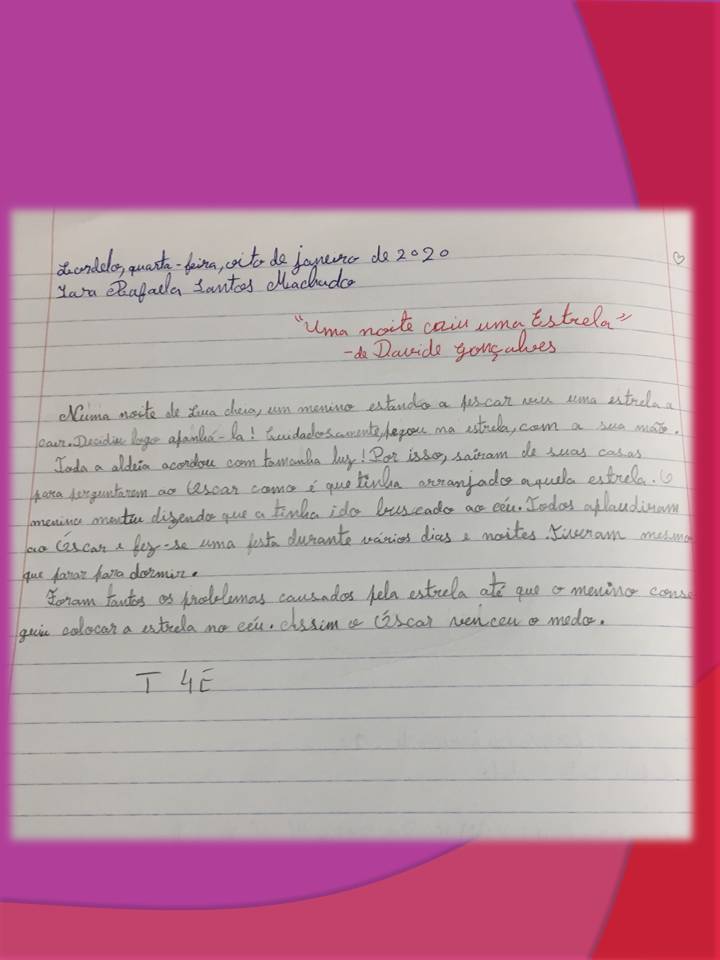 Lordelo, quarta-feira, oito de janeiro de 2020
Iara Rafaela Santos Machado
"Uma noite caiu uma Estrela"
-de Davide Gonçalves
Numa noite de Lua cheia, um menino estando a pescar viu uma estrela a
cair. Decidiu logo apanhá-la! Cuidadosamente, pegou na estrela, com a sua mão.
Toda a aldeia acordou com tamanha luz! Por isso, saíram de suas casas
para perguntarem ao Óscar como é que tinha arranjado aquela estrela. O
menino mentiu dizendo que a tinha ido buscado ao céu. Todos aplaudiram
ao Óscar e fez-se uma festa durante vários dias e noites. Tiveram mesmo
que parar para dormir.
Foram tantos os problemas causados pela estrela até que o menino conse
guiu colocar a estrela no céu. Assim o Óscar venceu o medo.
T 4E